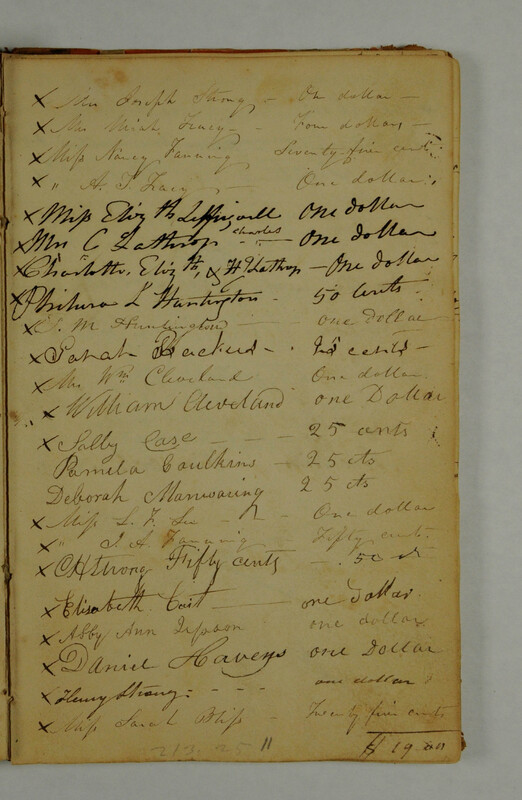 x Mrs Joseph Strong - On dollar -
x Mrs Uriah Tracy - - Four dollars -
x Miss Nancy Fanning Seventy five cents
x " A. T. Tracy - One dollar
x Miss Elizth Leffingwell One dollar
x Mrs C Lathrop Charles - One dollar
x Charlotte, Elizth, & H Lathrop - One dollar
x Philura L Huntington - 50 cents
x S. M Huntington - one Dollar
x Sarah Backus - . cents -
x Mrs Wm Cleveland One dollar
" x William Cleveland one Dollar
x Sally Case - - - 25 cents
Pamela Caulkins - 25 cts
Deborah Manwaring 25 cts
x Miss L. F. - - One dollar
x " J. A. Fanning Fifty cents
x CH Strong Fifty cents - . 50
x Elisabeth Coit - one Dollar
x Abby Ann one dollar
x Daniel Havens one Dollar
x Henry Strong - - - - one dollar
x Miss Sarah Bliss - Twenty five cents
213.25 11 $ 19.00